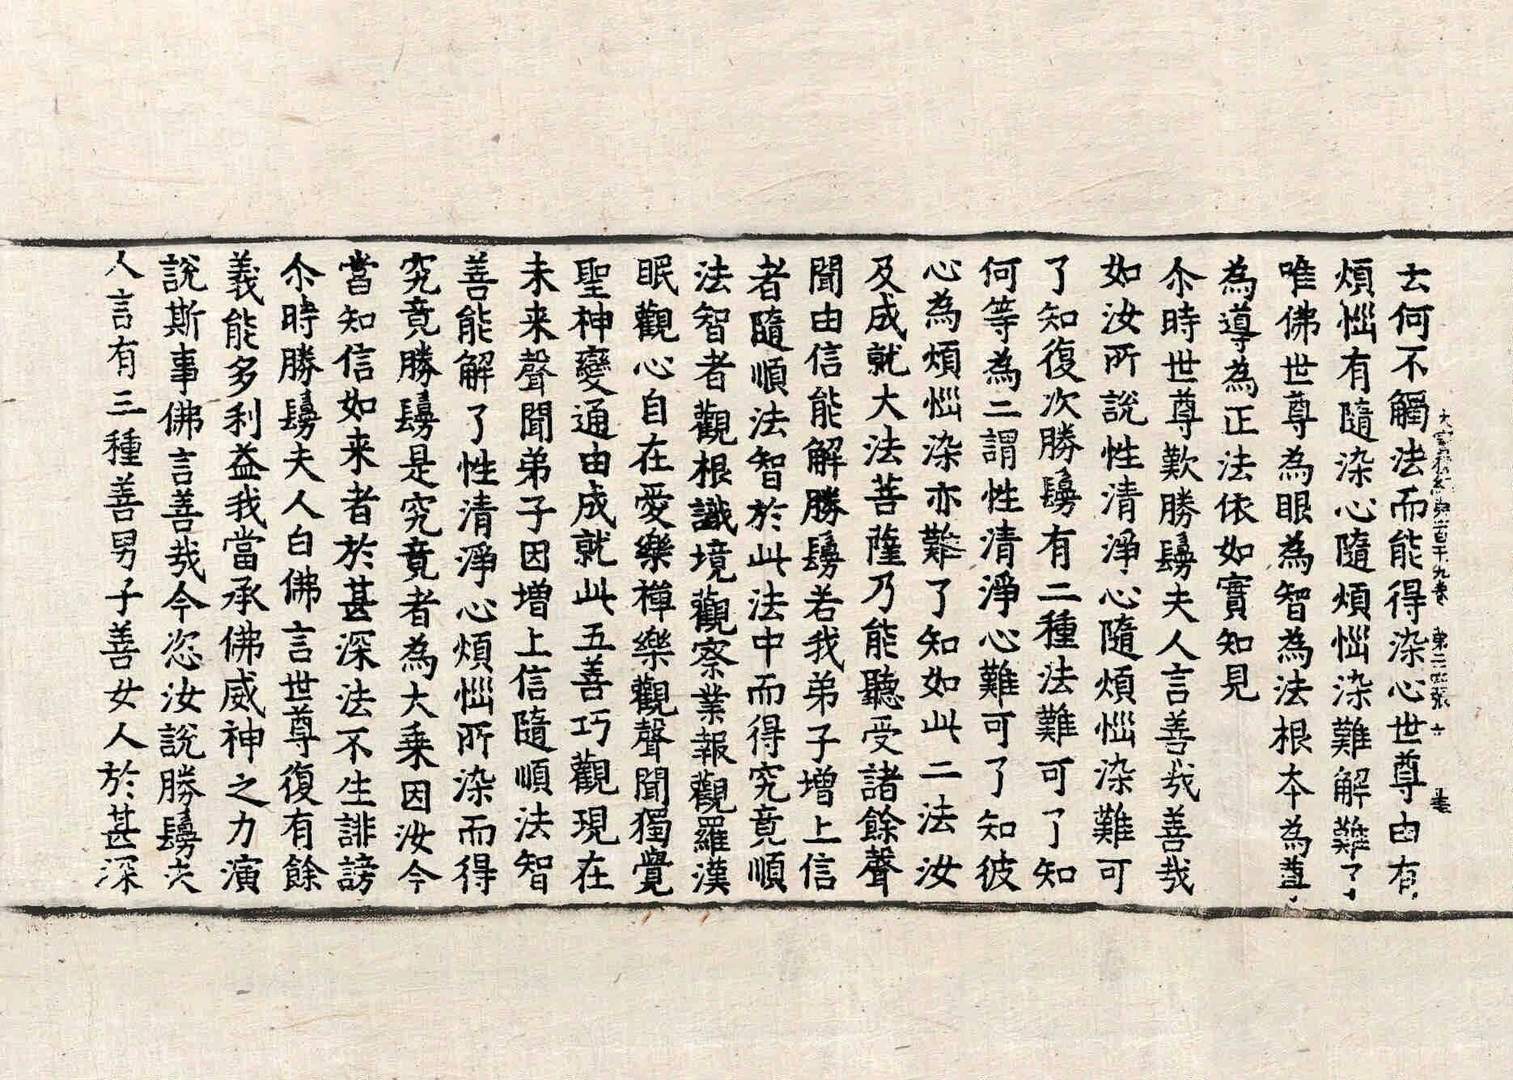 大寶積經第一百一十九卷 第二十四張 十
云何不觸法而能得染心世尊由有
煩惱有隨染心隨煩惱染難解難了
唯佛世尊為眼為智為法根本為尊
為導為正法依如實知見
尒時世尊歎勝鬘夫人言善哉善哉
如汝所說性清淨心隨煩惱染難可
了知復次勝鬘有二種法難可了知
何等為二謂性清淨心難可了知彼
心為煩惱染亦難了知如此二法汝
及成就大法菩薩乃能聽受諸餘聲
聞由信能解勝鬘若我弟子增上信
者隨順法智於此法中而得究竟順
法智者觀根識境觀察業報觀羅漢
眠觀心自在愛樂禪樂觀聲聞獨覺
聖神變通由成就此五善巧觀現在
未来聲聞弟子因增上信隨順法智
善能解了性清淨心煩惱所染而得
究竟勝鬘是究竟者為大乗因汝今
當知信如来者於甚深法不生誹謗
尒時勝鬘夫人白佛言世尊復有餘
義能多利益我當承佛威神之力演
說斯事佛言善哉今恣汝說勝鬘夫
人言有三種善男子善女人於甚深